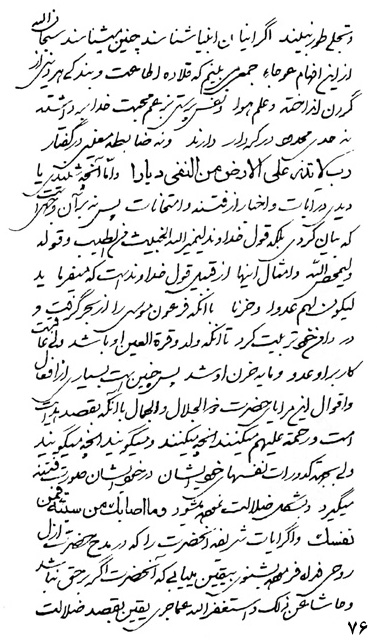 و تجلی طور نبیند اگر اینان انبیا شناسند چنین میشناسند سبحان الله
از این افهام عوجاء جمعی بینم که قلاده اطاعت و بندگی هر دنی را از
گردن انداخته و علم هوا و نفس پرستی بزعم محبت خدا برداشته
نه حد محدودی در کردار دارند و نه ضابطه معینی در گفتار
رب لا تذر علی الارض من النفی دیارا و اما آنچه شنیدی یا
دیدی در آیات و اخبار از فتنه و امتحانات پس نه بر آن وجهی
که بیان کردی بلکه قول خداوند لیمیز الله الخبیث من الطیب و قوله
و لیمحص الله و امثال آنها از قبیل قول خداوند است که میفرماید
لیکون لهم عدوا و حزنا با آنکه فرعون موسی را از بحر گرفت و
در دامن خود تربیت کرد تا آنکه ولد و قرة العین او باشد ولی عاقبت
کار بر او عدو و مایه حزن او شد پس چنین است بسیار از افعال
و اقوال این مرایا حضرت ذو الجلال و الجمال با آنکه بقصد هدایت
است و رحمة علیهم میکنند آنچه میکنند و میگویند آنچه میگویند
ولی بجهة کدورات نفسهای خود ایشان در خود ایشان صورت فتنه
میگیرد و شکل ضلالت بهم میشود و ما اصابک من سیئة فمن
نفسک و اگر آیات شریفه آنحضرت را که در مدح حضرت ازل
روحی فداه فرموده بشنوی بیقین بیابی که آنحضرت اگر بر حق نباشد
و حاشا عن ذلک و استغفر الله عما جری یقین بقصد ضلالت
۷۶